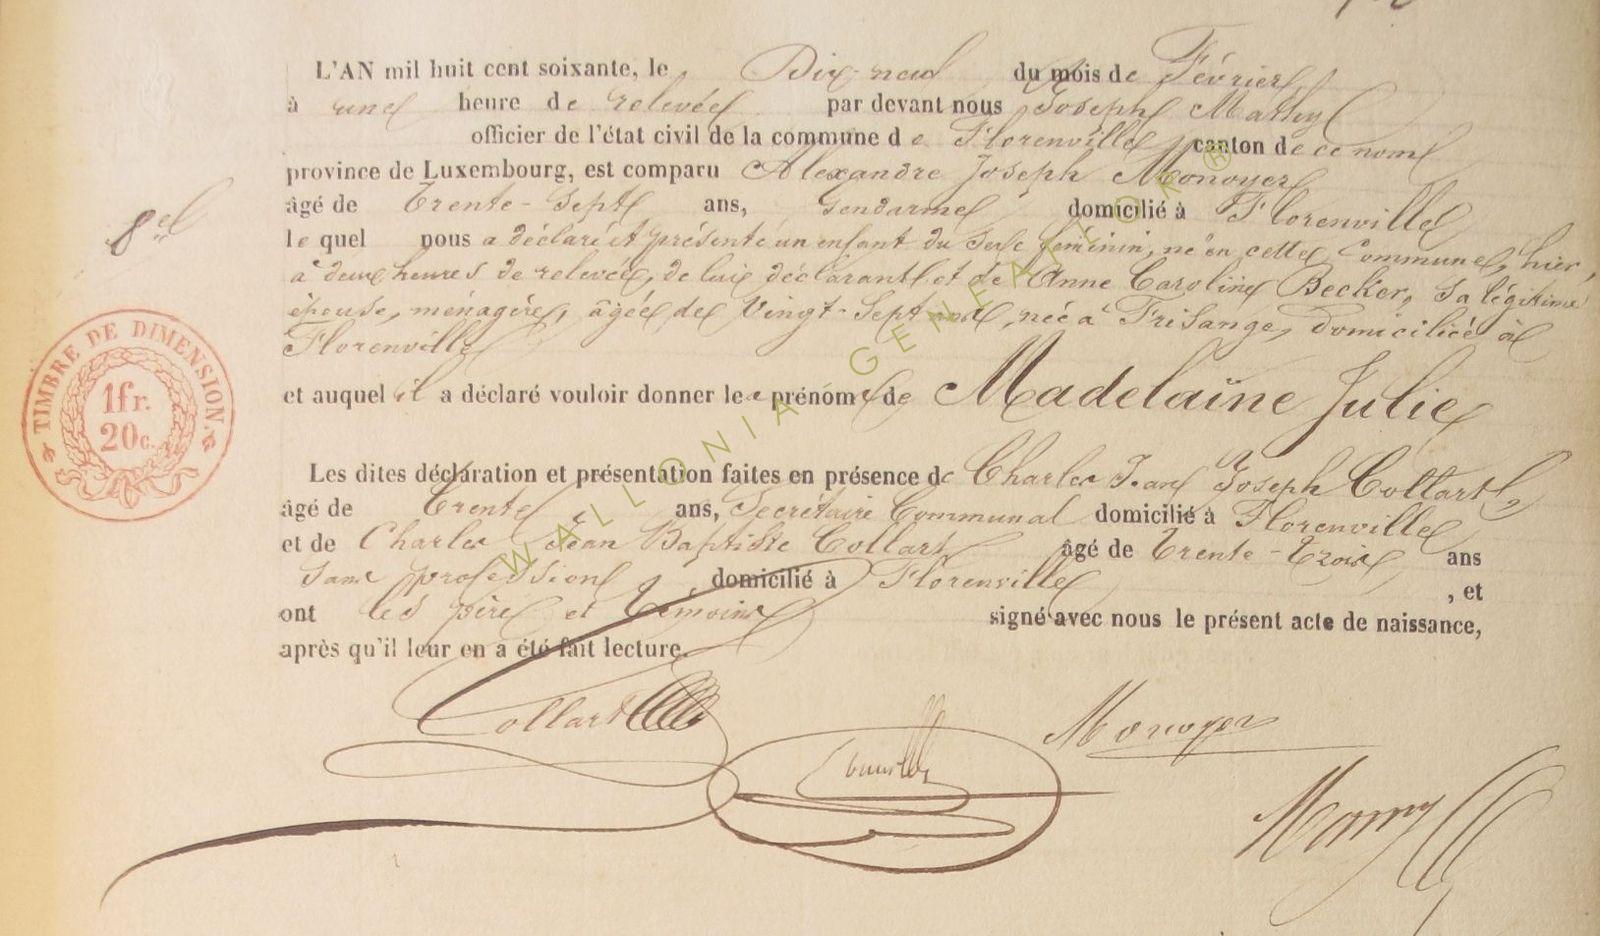 L'AN mil huit cent soixante, le Dix-neuf du mois de Février
à une heure de relevée par devant nous Joseph Mathy
officier de l'état civil de la commune de Florenville canton de ce nom
province de Luxembourg, est comparu Alexandre Joseph Monoyer
âgé de Trente-Sept ans, Gendarme domicilié à Florenville
8e
le quel nous a déclaré et présenté un enfant du sexe féminin, né en cette Commune, hier,
à deux heures de relevée, de lui déclarant et de Anne Caroline Becker, sa légitime
épouse, ménagère, âgée de Vingt-Sept ans, née à Frisange, Domiciliée à
Florenville
TIMBRE DE DIMENSION.
1fr.
20c.
et auquel il a déclaré vouloir donner les prénoms de Madelaïne Julie
Les dites déclaration et présentation faites en présence de Charles Jean Joseph Collart
âgé de Trente ans, Secrétaire Communal domicilié à Florenville
et de Charles Jean Baptiste Collart âgé de Trente-Trois ans
Sans profession domicilié à Florenville , et
ont les père et témoins signé avec nous le présent acte de naissance,
après qu'il leur en a été fait lecture.
Collart
Monoyer
WALLONIA-GENEALOR®